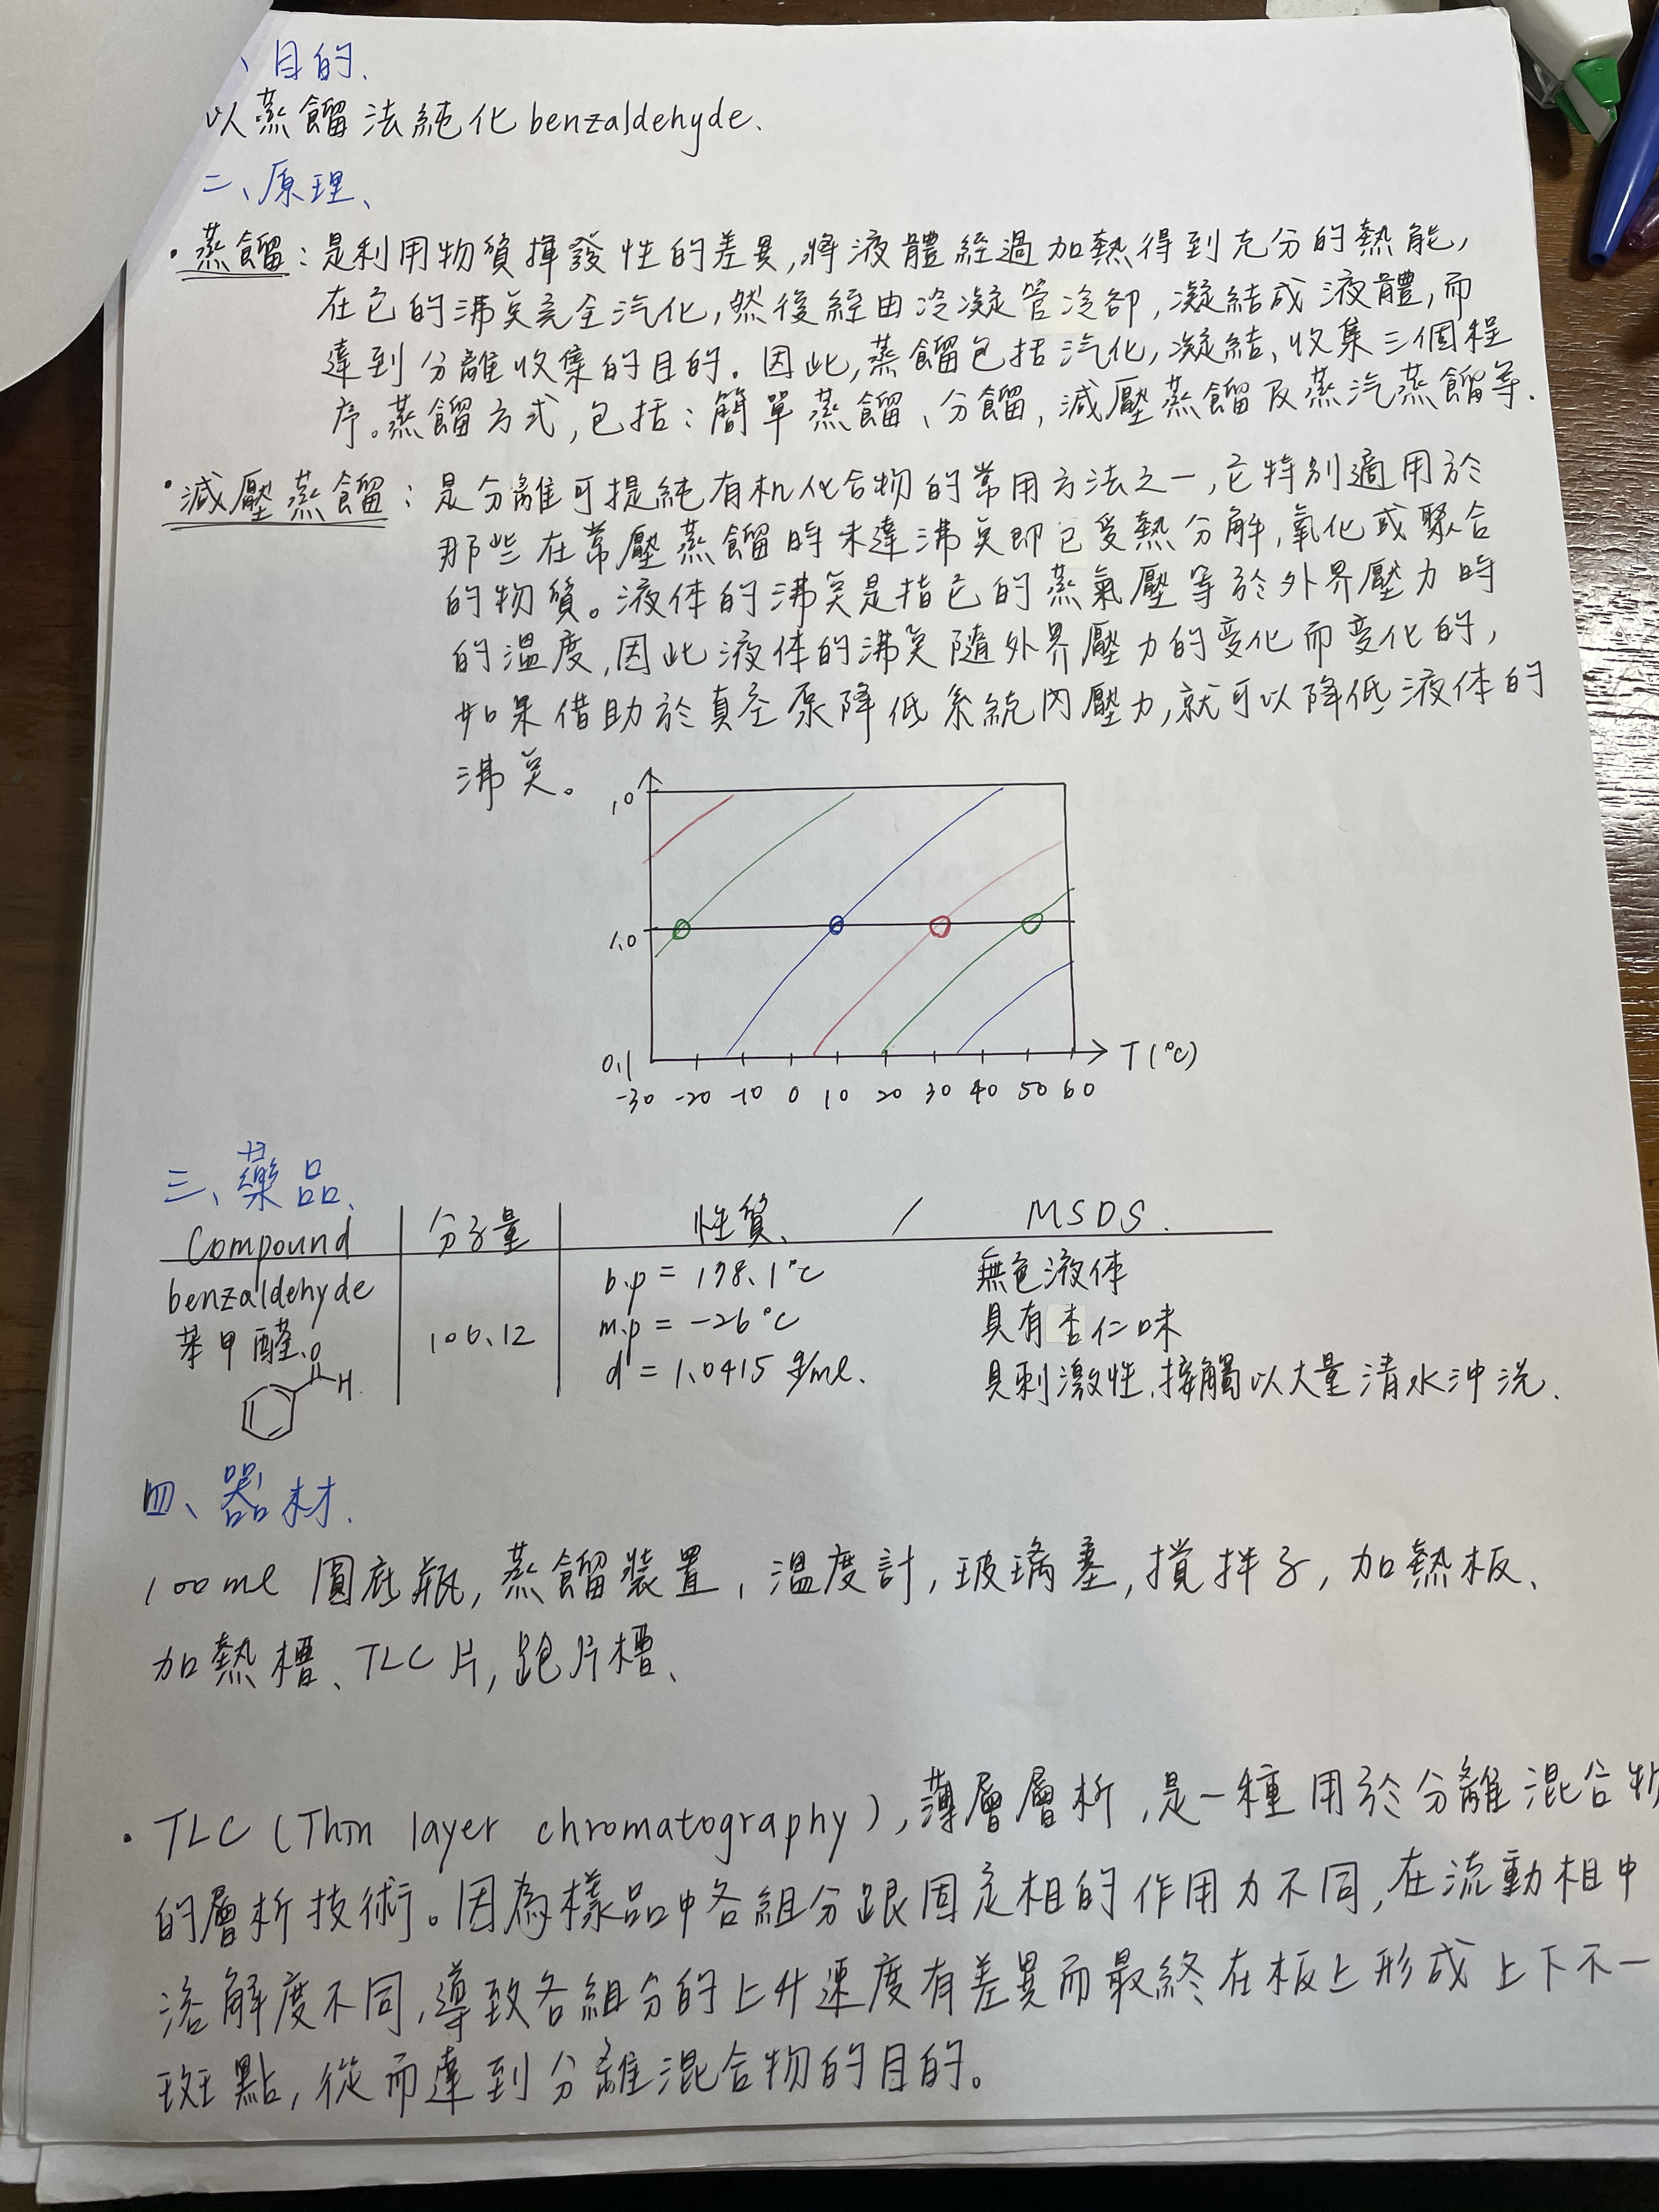 、目的、
以蒸餾法純化benzaldehyde、
二、原理、
·蒸餾：是利用物質揮發性的差異,將液體經過加熱得到充分的熱能,
在它的沸点完全汽化,然後經由冷凝管冷卻,凝結成液體,而
達到分離收集的目的. 因此,蒸餾包括汽化,凝結、收集三個程
序。蒸餾方式,包括：簡單蒸餾、分餾,減壓蒸餾及蒸汽蒸餾等.
·減壓蒸餾：是分離可提純有机化合物的常用方法之一,它特別適用於
那些在常壓蒸餾時未達沸点即已受熱分解,氧化或聚合
的物質。液体的沸点是指它的蒸氣壓等於外界壓力時
的溫度,因此液体的沸点隨外界壓力的变化而变化的,
如果借助於真空泵降低系統內壓力,就可以降低液体的
沸点。
10
1.0
0.1
T (°C)
-30 -20 -10 0 10 20 30 40 50 60
三、藥品、
Compound 分子量 性質、 / MSDS.
benzaldehyde b.p = 178.1°C 無色液体
苯甲醛、 106.12 m.p = -26°C 具有杏仁味
O H d = 1.0415 g/ml. 具刺激性、接觸以大量清水沖洗.
四、器材.
100ml 圓底瓶,蒸餾裝置,溫度計,玻璃塞,攪拌子,加熱板、
加熱槽、TLC片,跑片槽、
· TLC (Thin layer chromatography),薄層層析,是一種用於分離混合物
的層析技術。因為樣品中各組分跟固定相的作用力不同,在流動相中
溶解度不同,導致各組分的上升速度有差異而最終在板上形成上下不一
斑點,從而達到分離混合物的目的。